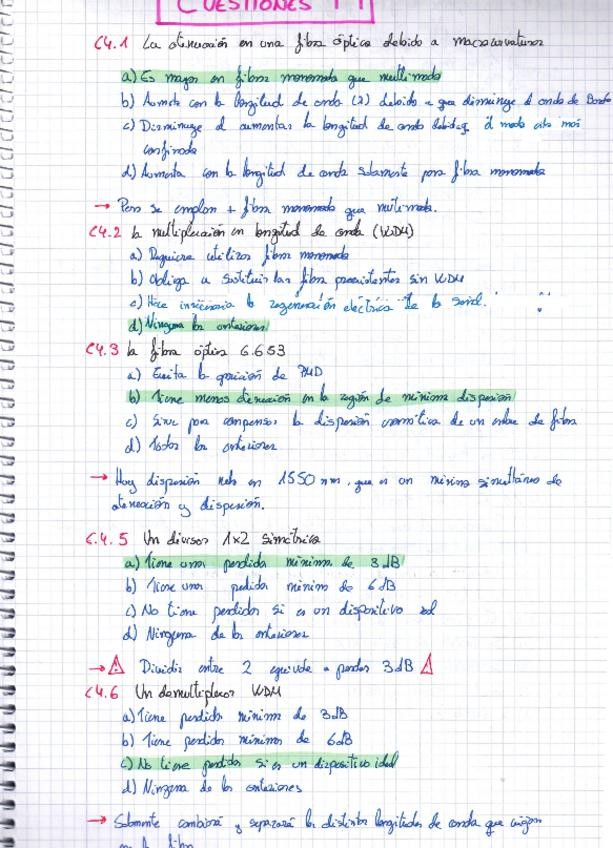 CUESTIONES T4
C4.1 La atenuación en una fibra óptica debido a macrocurvaturas
a) Es mayor en fibra monomodo que multimodo
b) Aumenta con la longitud de onda (λ) debido a que disminuye el ancho de Banda
c) Disminuye al aumentar la longitud de onda debido a q el modo está más
confinado
d) Aumenta con la longitud de onda solamente para fibra monomodo
→ Pero se emplean + fibra monomodo que multimodo.
C4.2 La multiplexación en longitud de onda (WDM)
a) Requiere utilizar fibra monomodo
b) Obliga a sustituir las fibra preexistentes sin WDM
c) Hace innecesaria la regeneración eléctrica de la señal.
d) Ninguna las anteriores
C4.3 la fibra óptica G.653
a) Evita la aparición de PMD
b) Tiene menos atenuación en la región de mínima dispersión
c) Sirve para compensar la dispersión cromática de un enlace de fibra
d) Todas las anteriores
→ Hay dispersión nula en 1550 nm, que es un mínimo simultáneo de
atenuación y dispersión.
C.4.5 Un divisor 1x2 simétrico
a) Tiene unas perdidas mínimas de 3 dB
b) Tiene unas perdidas mínimas de 6 dB
c) No tiene perdidas si es un dispositivo
d) Ninguna de las anteriores
→ Dividir entre 2 equivale a perder 3dB
C4.6 Un demultiplexor WDM
a) Tiene perdidas mínimas de 3dB
b) Tiene perdidas mínimas de 6dB
c) No tiene perdidas si es un dispositivo ideal
d) Ninguna de las anteriores
→ Solamente combinará y separará las distintas longitudes de onda que viajan
en la fibra